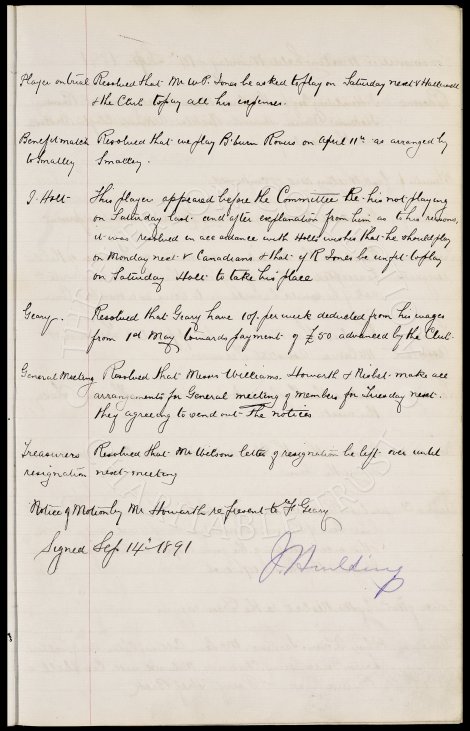 Player on trial Resolved that Mr W.P. Jones be asked to play on Saturday next v Halliwell
& the Club to pay all his expenses.
Benefit match Resolved that we play B'burn Rovers on April 11th as arranged by
to Smalley Smalley.
J. Holt This player appeared before the Committee re his not playing
on Saturday last and after explanation from him as to his reasons,
it was resolved in accordance with Holts wishes that he should play
on Monday next v Canadians & that if R Jones be unfit to play
on Saturday Holt to take his place
Geary. Resolved that Geary have 10/- per week deducted from his wages
from 1st May towards payment of £50 advanced by the Club.
General Meeting Resolved that Messrs Williams. Howarth & Nisbet make all
arrangements for General meeting of Members for Tuesday next.
they agreeing to send out The notices
Treasurers Resolved that Mr Wilsons letter of resignation be left over until
resignation next meeting
Notice of Motion by Mr Howarth re present to Mr F Geary
Signed Sep 14th 1891
CHARITABLE TRUST